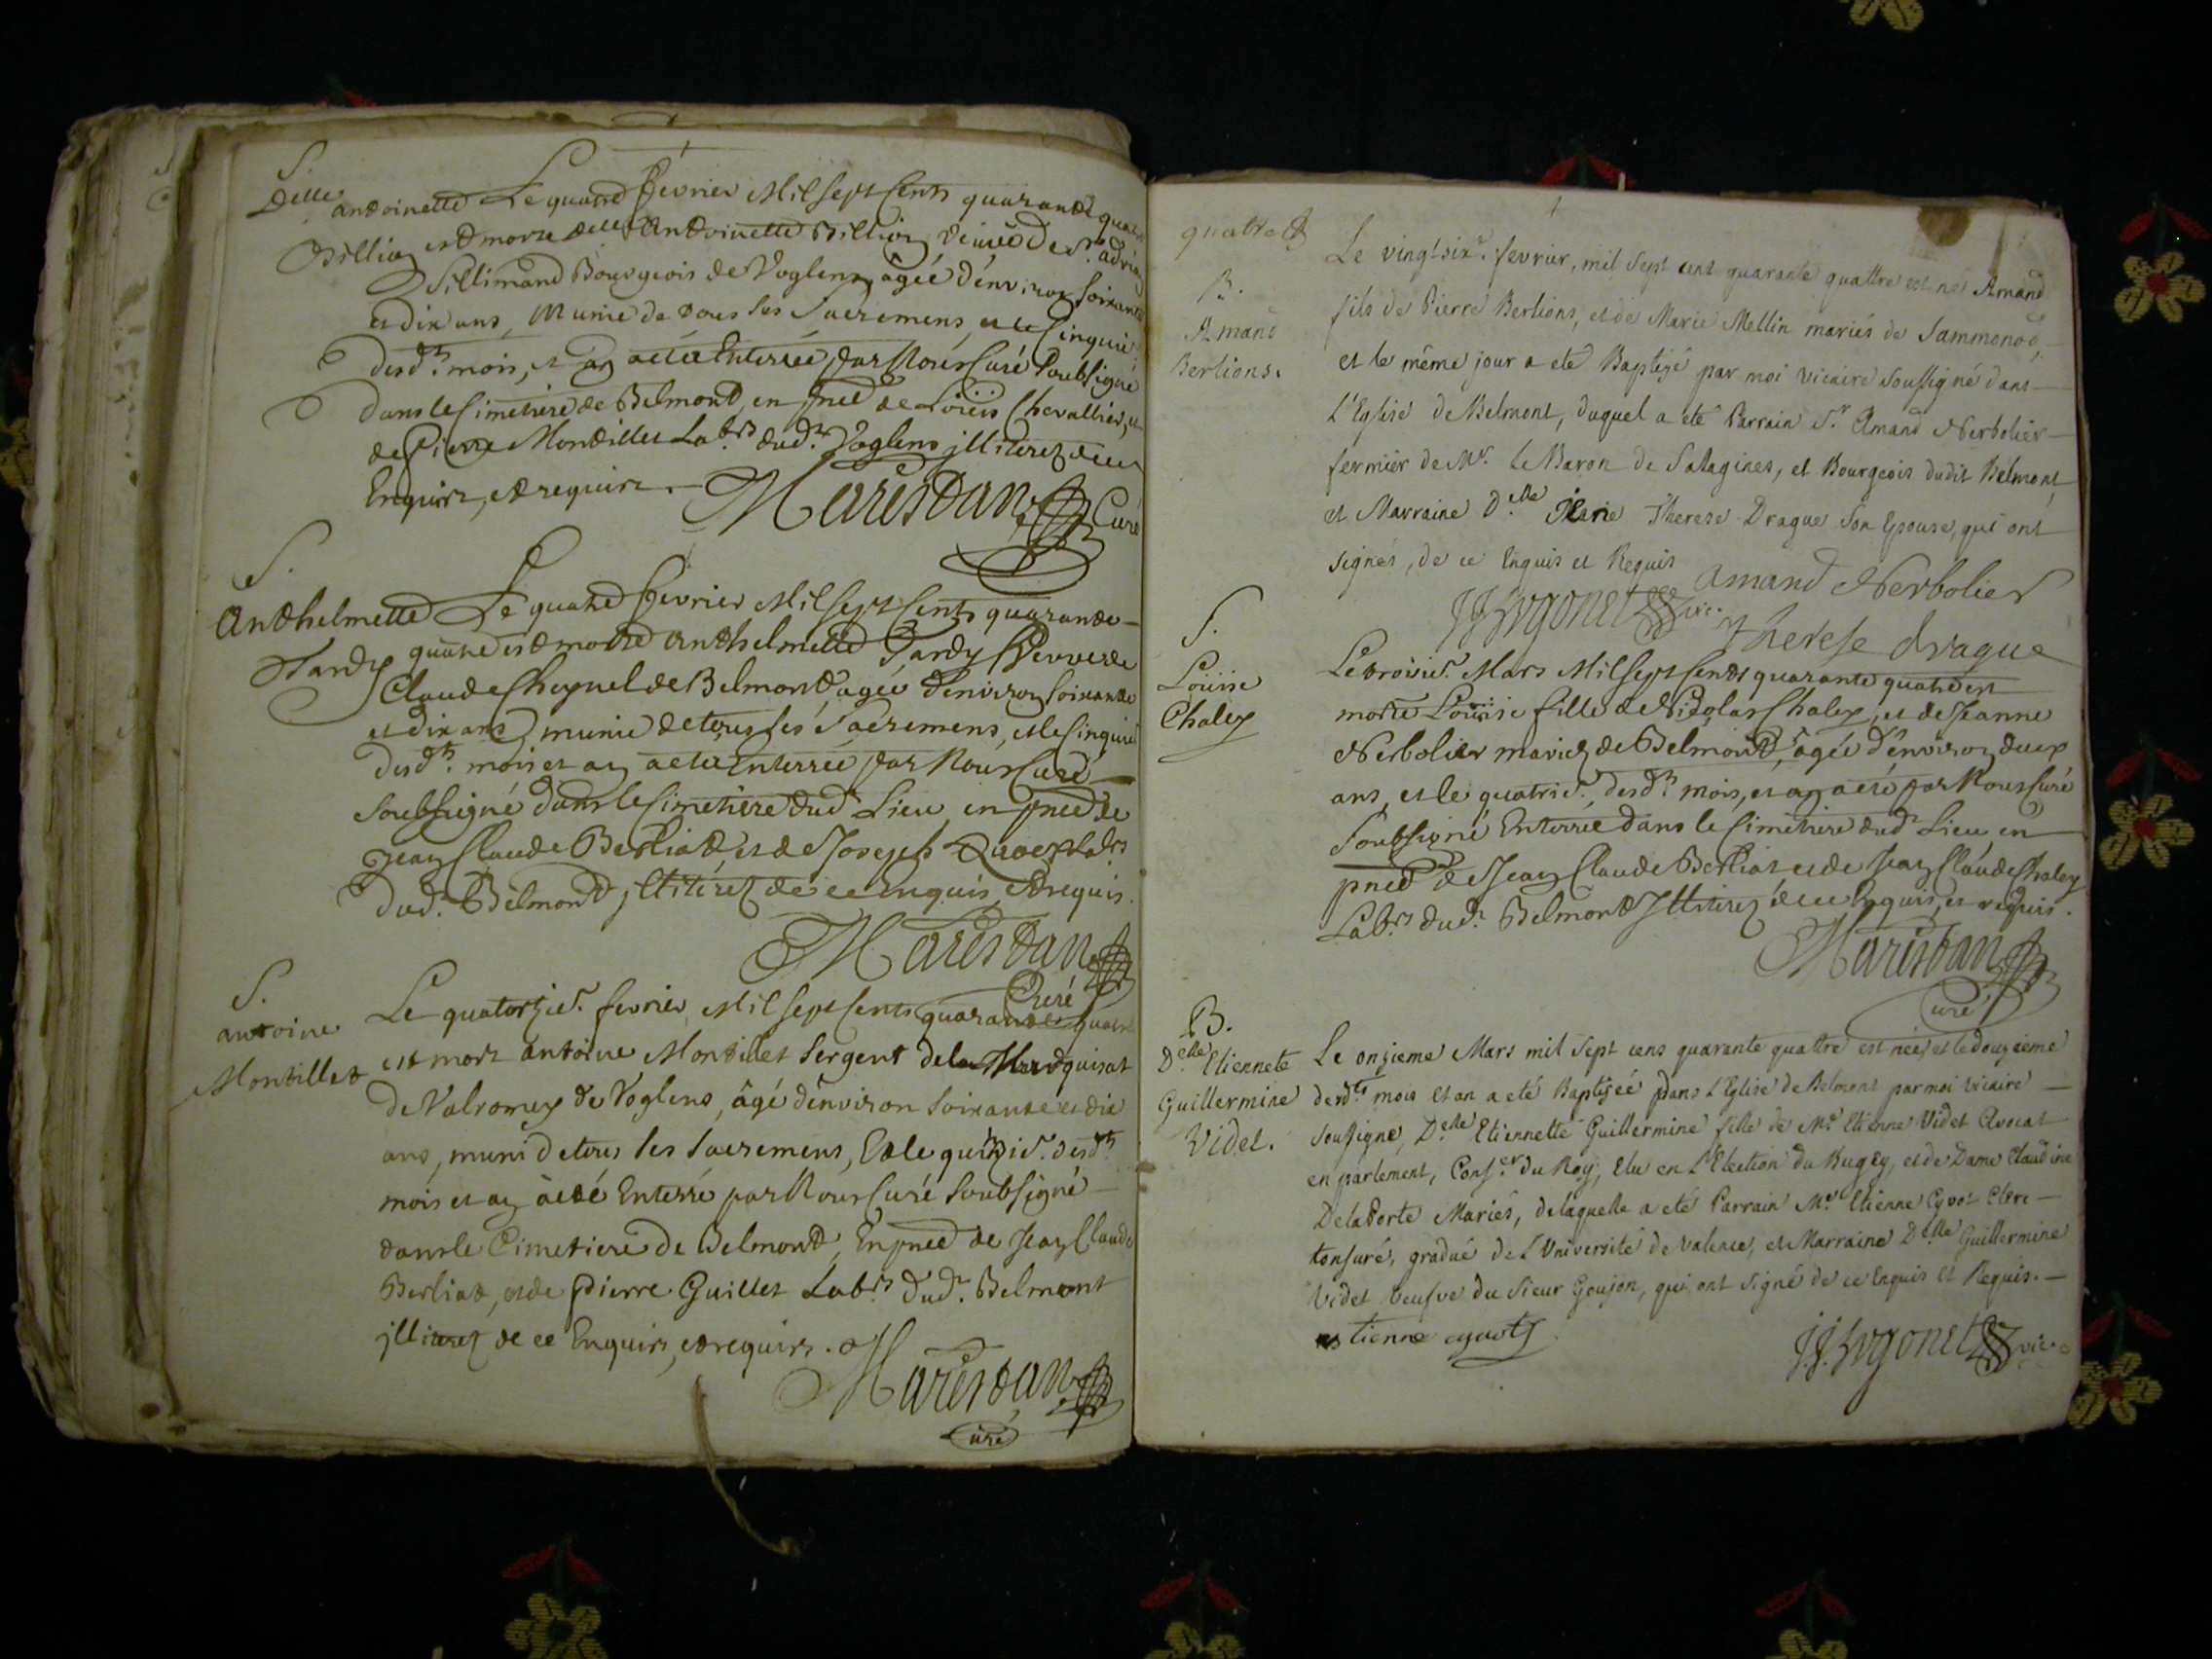 S.
Delle antoinette
Billion
Le quatre fevrier Mil sept Cents quarante quatre
est morte delle Antoinette Billion veuve de Sr. adrian
Sillimand Bourgeois de Voglens, âgée d'environ soixante
et dix ans, Munie de tous les Sacremens, et le Cinquie.
desdts. mois, et an a eté Enterrée par Nous Curé Soubsigné
dans le Cimetiere de Belmont, en pnce de Loüis Chevallier, et
de Pierre Montillet Labrs dudt. Voglens jlliterez de ce
Enquis, et requis.
Marestan Curé
S.
Anthelmette
Tardy
Le quatre fevrier Mil sept Cents quarante
quatre est morte Anthelmette Tardy veuve de
Claude Cheynel de Belmont, agée d'environ soixante
et dix ans, munie de tous les Sacremens, et le Cinquie.
desdts. mois et an a eté Enterrée par Nous Curé
Soubsigné dans le Cimetiere dud Lieu, en pnce de
Jean Claude Berliat, et de Joseph labrs
dudt. Belmont jlliterez de ce enquis, et requis.
Marestan
Curé
S.
antoine
Montillet
Le quatorzie. fevrier Mil sept Cents quarante quatre
est mort antoine Montillet Sergent de la Marquisat
de Valromey de Voglens, âgé d'environ soixante et dix
ans, muni de tous les sacremens, Et le quinzie. desdts
mois et an à eté Enterré par Nous Curé Soubsigné
dans le Cimetiere de Belmont, En pnce de Jean Claude
Berliat, et de Pierre Guillet Labrs dudt. Belmont
jlliterez de ce Enquis, et requis.
Marestan
Curé
quatre
B.
Amand
Berlions.
Le vingt six.e fevrier, mil sept cent quarante quattre est né Amand
fils de Pierre Berlions, et de Marie Mellin mariés de Sammonod,
et le même jour a eté Baptizé par moi vicaire soussigné dans
l'Eglise de Belmont, duquel a eté Parrain Sr. Amand Nerbolier
fermier de Mr. le Baron de Salagines, et Bourgeois dudit Belmont,
et Marraine D.elle Marie Therese Drague son Epouse, qui ont
signés, de ce Enquis et Requis
Amand Nerbolier
J J Hvgonet vic.
Therese drague
S.
Loüise
Chaley
Le troisie. Mars Mil sept Cents quarante quatre est
morte Loüise fille de Nicolas Chaley, et de Jeanne
Nerbolier mariez de Belmont, âgée d'environ deux
ans, et le quatrie. desdts. mois, et an a eté par Nous Curé
Soubsigné Enterrée dans le Cimetiere dud Lieu, en
pnce de Jean Claude Berliat et de Jean Claude Chaley
Labrs. dudt. Belmont Jlliterez de ce Enquis, et requis.
Marestan
Curé
B.
D.elle Etiennete
Guillermine
Videt.
Le onzieme Mars mil sept cens quarante quattre est née, et le douzieme
desdts mois et an a eté Baptizée dans l'Eglise de Belmont par moi vicaire
soussigné, D.elle Etiennette Guillermine fille de Me. Etienne Videt Avocat
en parlement, Cons.er du Roy, Elu en l'Election du Bugey, et de Dame Claudine
DelaPorte Mariés, de laquelle a eté Parrain Mr Etienne Cyvot Clerc
tonsuré, gradué de l'Université de Valence, et Marraine D.elle Guillermine
Videt veufve du Sieur Goujon, qui ont signé de ce Enquis et Requis.
Etienne cyvot
J.J. Hvgonet vic.